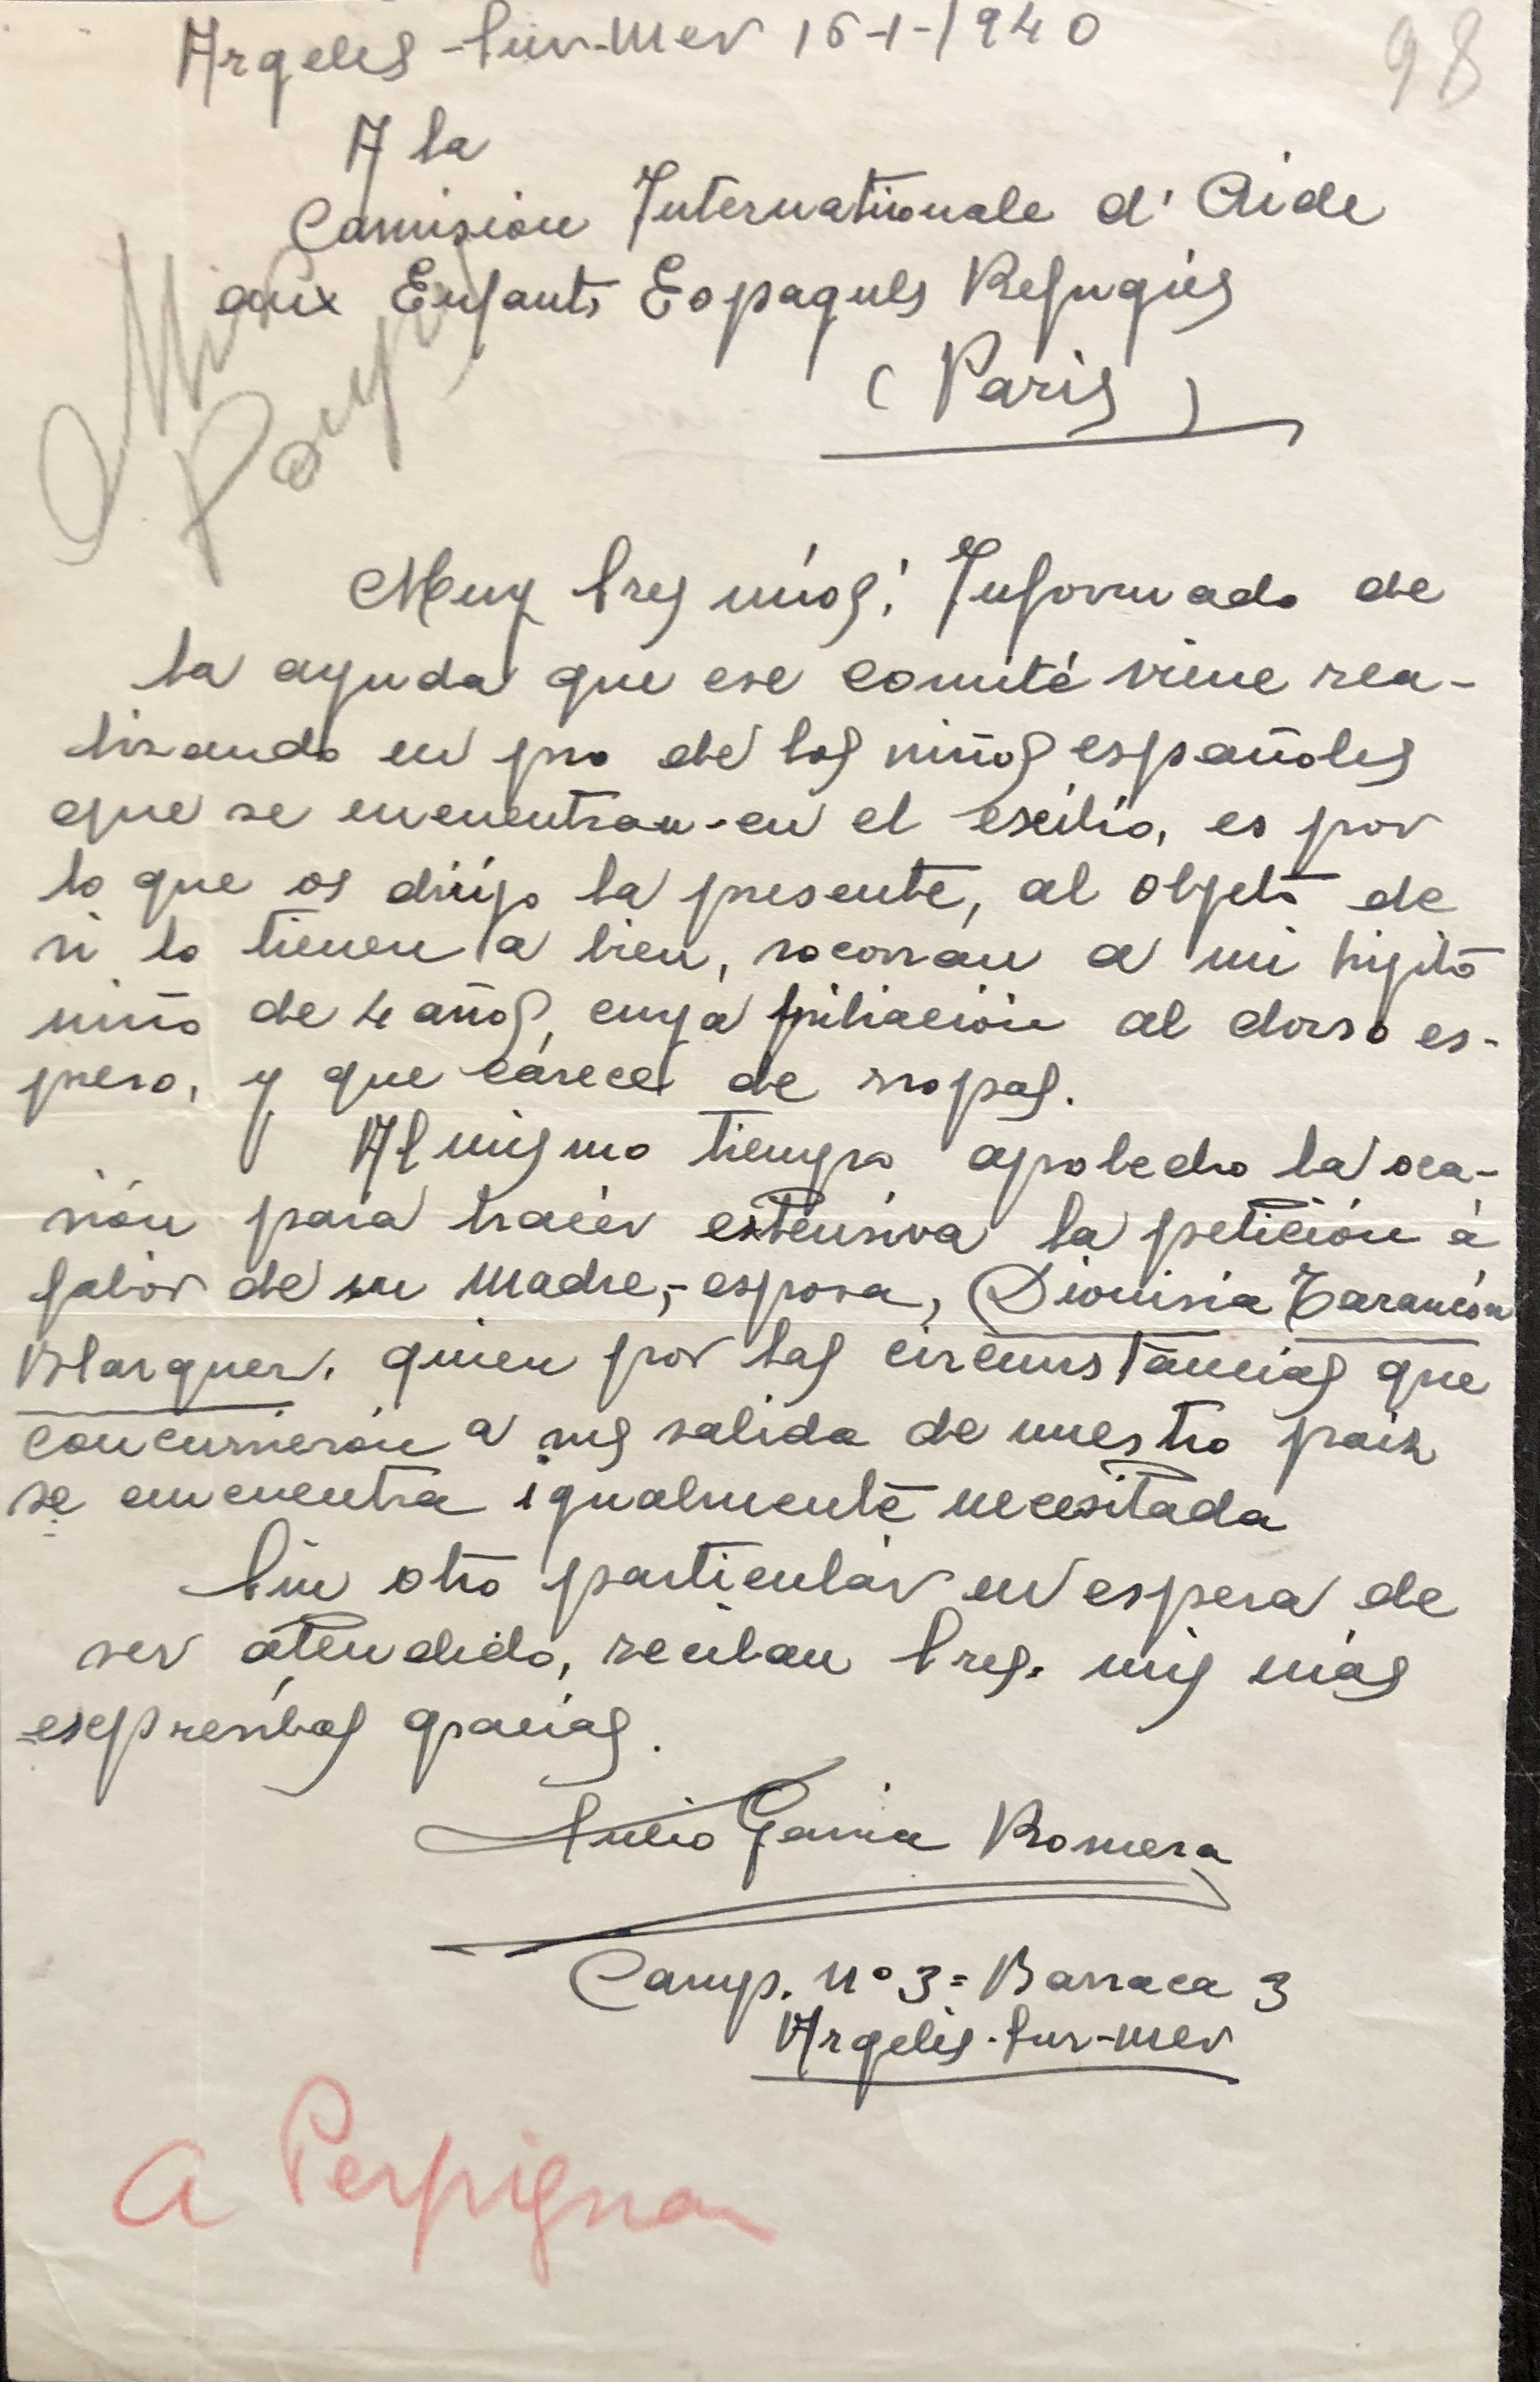 Argeles-Sur-Mer 16-1-1940
98
A la
Comision Internationale d'Aide
aux Enfants Espagnuls Refugiés
(Paris)
Muy Sres mios: Informado de
la ayuda que ese comité viene rea-
lizando en pro de los niños españoles
que se encuentran-en el exilio, es por
lo que os dirijo la presente, al objeto de
si lo tienen a bien, socorran a mi hijito
niño de 4 años, cuya filiación al dorso es-
preso, y que carece de ropas.
Al mismo tiempo aprobecho la oca-
sión para hacer extensiva la petición a
fabor de su madre,-esposa, Dionisia Tarancón
Blasquez. quien por las circunstancias que
concurrierón a su salida de nuestro pais
se encuentra igualmente necesitada
Sin otro particular en espera de
ser atendido, reciban Sres. mis más
expresibas gracias.
Garcia Romera
Camp. Nº 3=Barraca 3
Argelés-Sur-Mer
A Perpignan